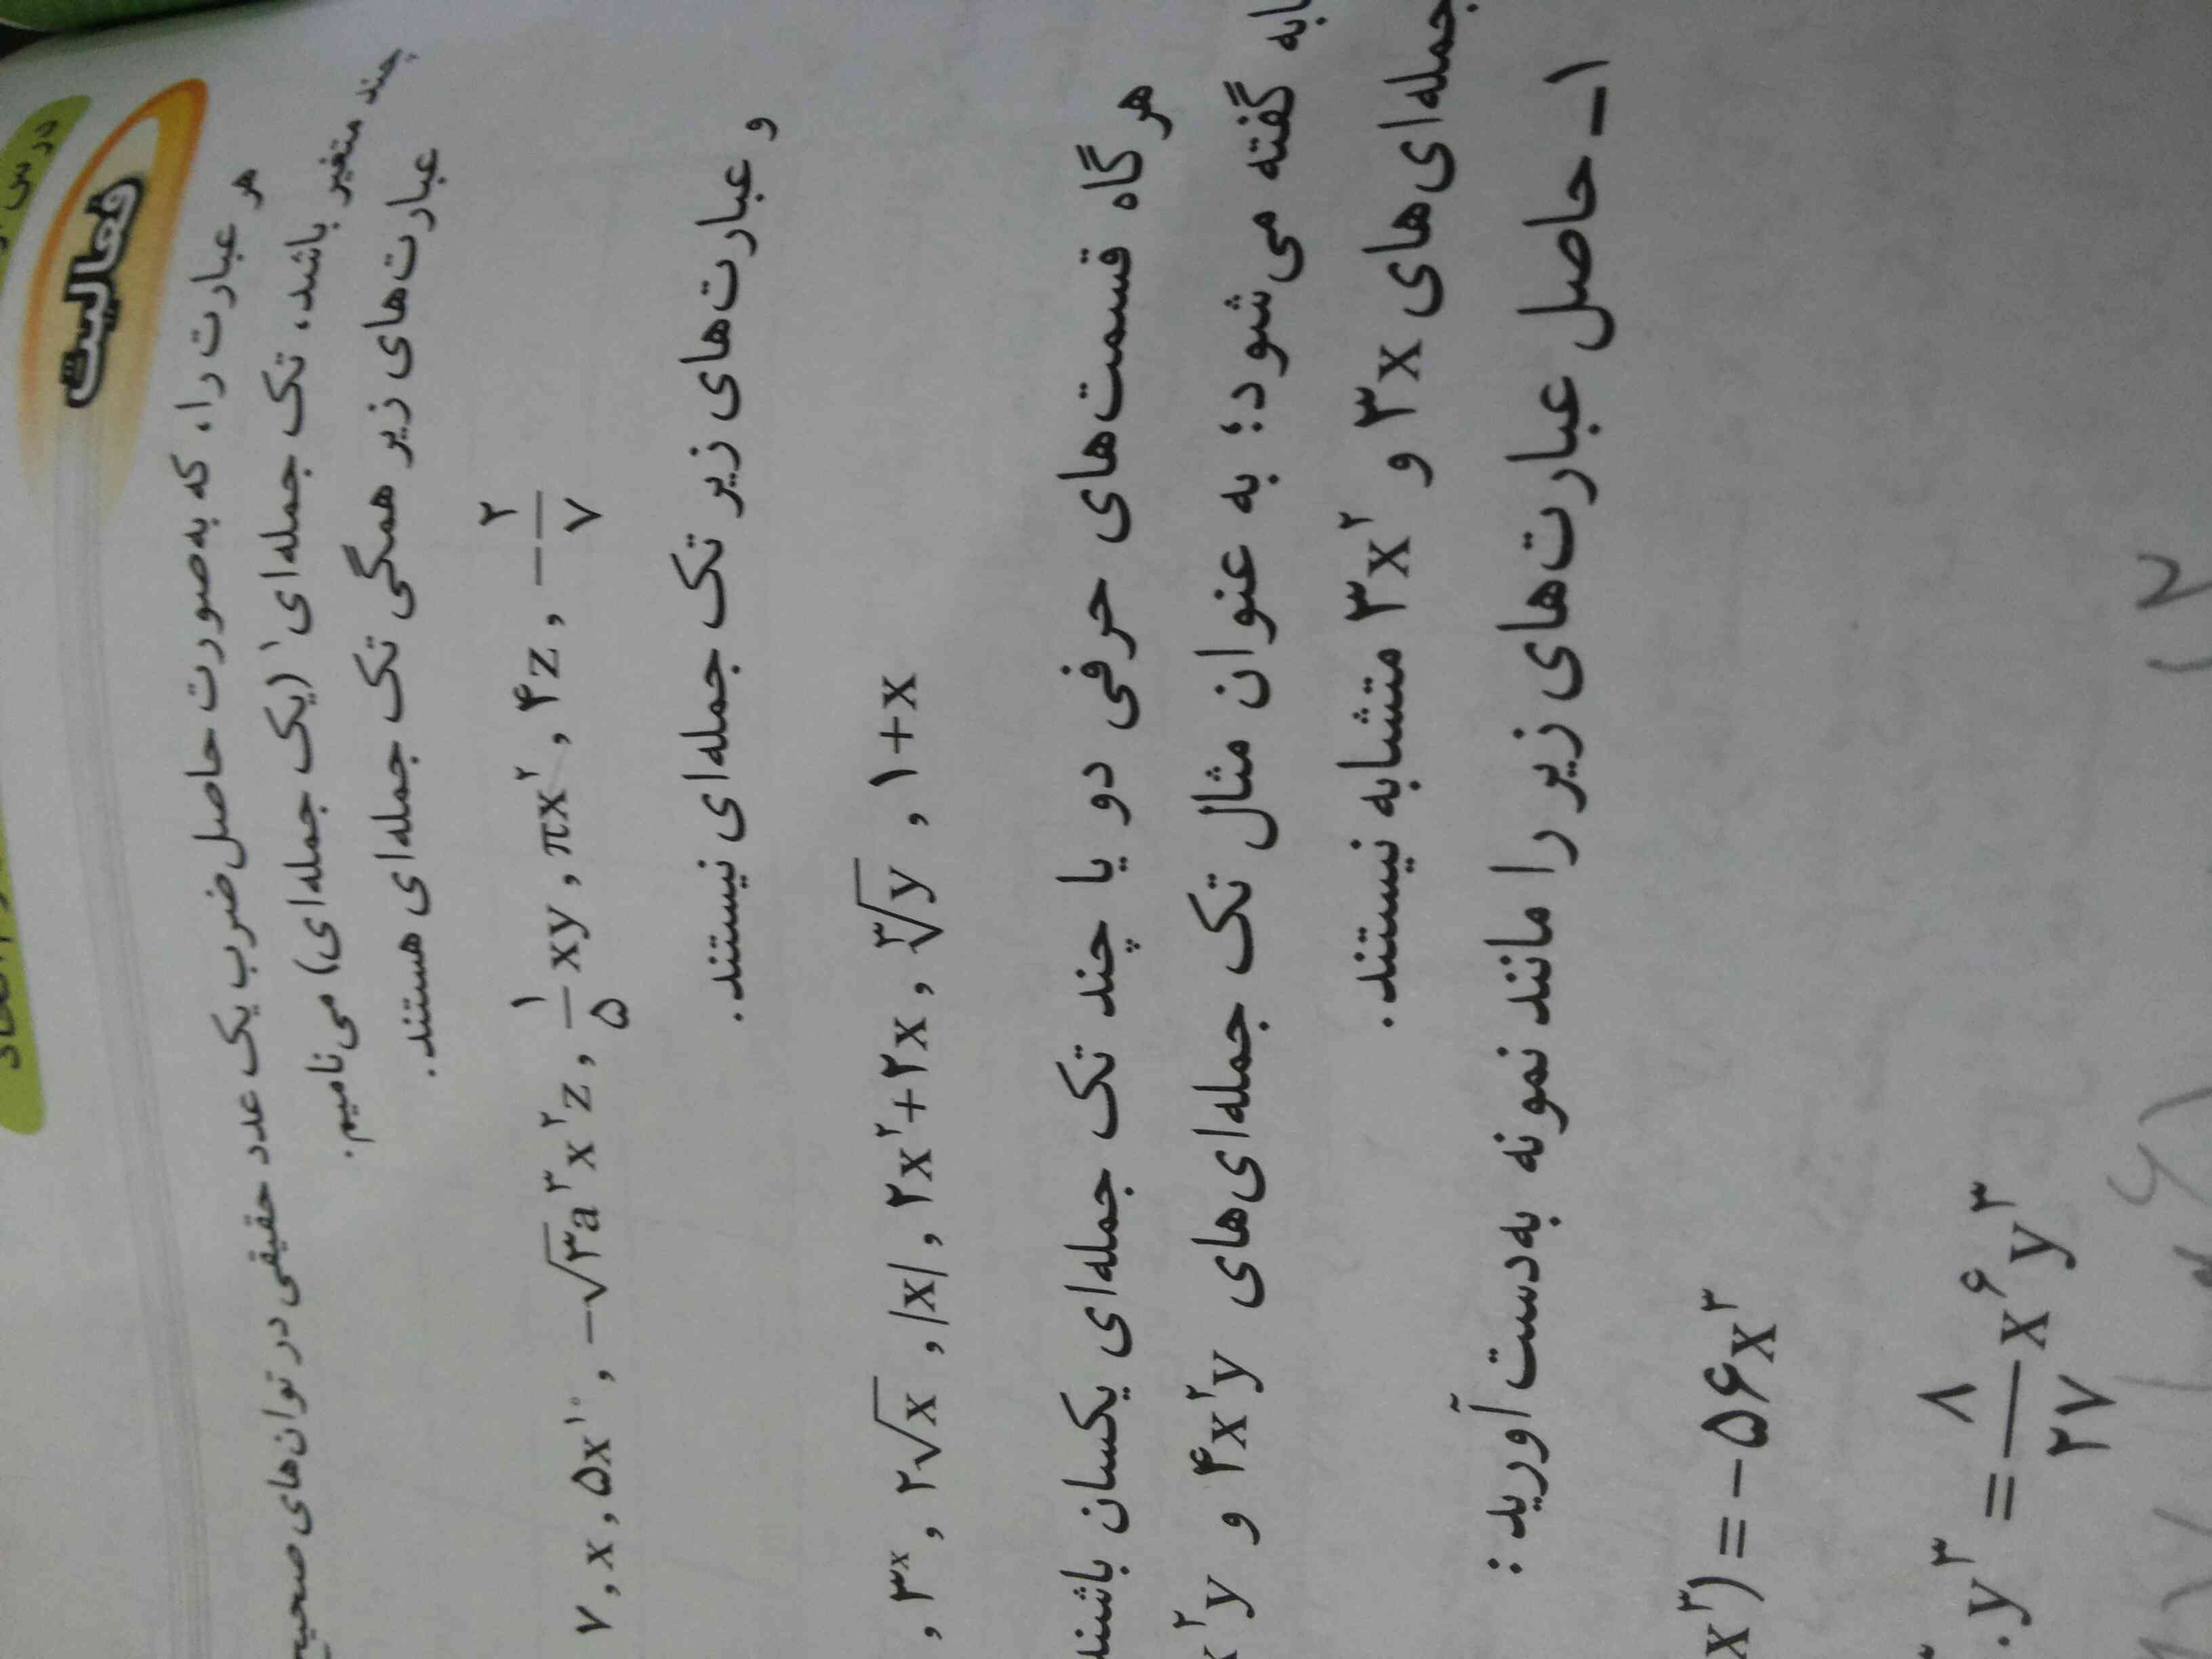 فعالیت
هر عبارت را، که به صورت حاصل ضرب یک عدد حقیقی در توان‌های صحیح
چند متغیر باشد، تک جمله‌ای ۱ (یک جمله‌ای) می‌نامیم.
عبارت‌های زیر همگی تک جمله‌ای هستند.
۷ , x , ۵x¹⁰ , −√۳a³x²z , ۱/۵ xy , πx² , ۴z , −۲/۷
و عبارت‌های زیر تک جمله‌ای نیستند.
, ۳ˣ , ۲√x , |x| , ۲x²+۲x , ³√y , ۱+x
هر گاه قسمت‌های حرفی دو یا چند تک جمله‌ای یکسان باشند
گفته می‌شود؛ به عنوان مثال تک جمله‌ای‌های ۴x²y و x²y
جمله‌ای‌های ۳x و ۳x² متشابه نیستند.
۱− حاصل عبارت‌های زیر را مانند نمونه به‌دست آورید :
x³) = −۵۶x³
.y³ = ۸/۲۷ x⁶y³